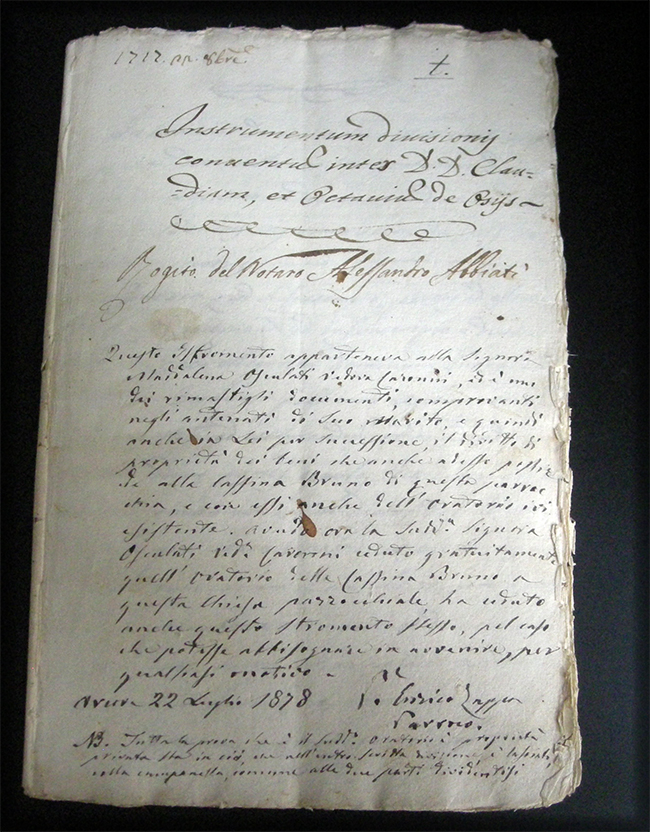 1717. 8bre
+.
Instrumentum divisionis
conventū inter D. D. Clau=
=diam, et Octaviū de Osijs
Rogito del Notaro Alessandro Abbiati
Questo Istromento apparteneva alla Signora
Maddalena Osculati Vedova Caronini, ed è uno
dei rimastigli documenti comprovanti
negli antenati di Suo Marito, e quindi
anche in Lei per successione, il diritto di
proprietà dei beni che anche adesso possie
de alla Cassina Bruno di questa parroc
chia, e con essi anche dell' Oratorio ivi
esistente. Avendo ora la Sudª Signora
Osculati Vedª Caronini ceduto gratuitamente
quell' Oratorio della Cassina Bruno a
questa Chiesa parrocchiale, ha ceduto
anche questo Stromento stesso, pel caso
che potesse abbisognare in avvenire, per
qualsiasi motivo -
22 Luglio 1878
Enrico
Parroco.
NB. Tutta la prova che è il sudº Oratorio è proprietà
privata sta in ciò, che nell'entro scritta divisione è lasciata
colla campanella, comune alle due parti dividentisi